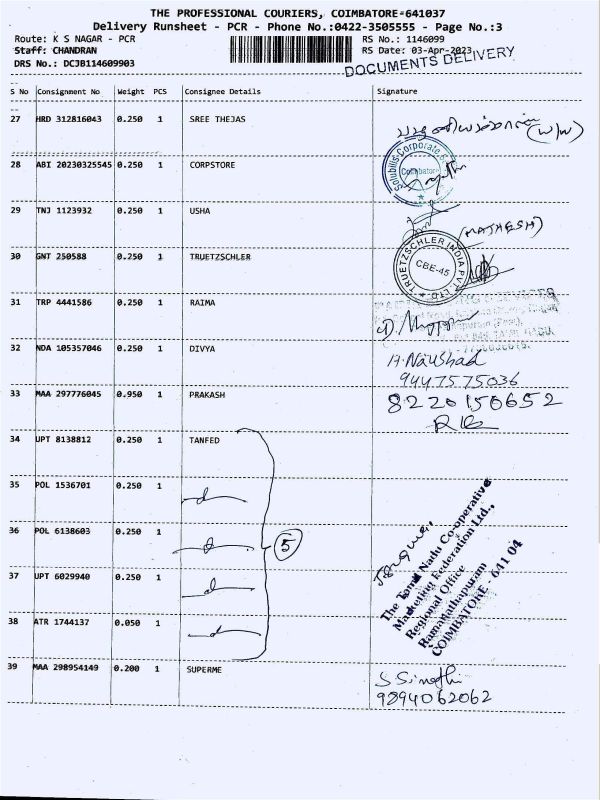 THE PROFESSIONAL COURIERS, COIMBATORE-641037
Delivery Runsheet - PCR - Phone No.:0422-3505555 - Page No.:3
Route: K S NAGAR - PCR RS No.: 1146099
Staff: CHANDRAN RS Date: 03-Apr-2023
DRS No.: DCJB114609903 DOCUMENTS DELIVERY
S No Consignment No Weight PCS Consignee Details Signature
27 HRD 312816043 0.250 1 SREE THEJAS
(W/W)
28 ABI 20230325545 0.250 1 CORPSTORE
Solubilis Corporate
Coimbatore
29 TNJ 1123932 0.250 1 USHA
(MATHESH)
30 GNT 250588 0.250 1 TRUETZSCHLER
TRUETZSCHLER INDIA PVT. LTD
CBE-45
31 TRP 4441586 0.250 1 RAIMA
32 NDA 105357046 0.250 1 DIVYA
A. Naushad
9447575036
33 MAA 297776045 0.950 1 PRAKASH
8220150652
34 UPT 8138812 0.250 1 TANFED
35 POL 1536701 0.250 1
36 POL 6138603 0.250 1
5
37 UPT 6029940 0.250 1
38 ATR 1744137 0.050 1
The Tamil Nadu Co-operative
Marketing Federation Ltd.,
Regional Office
Ramanathapuram
COIMBATORE - 641 04
39 MAA 298954149 0.200 1 SUPERME
9894062062